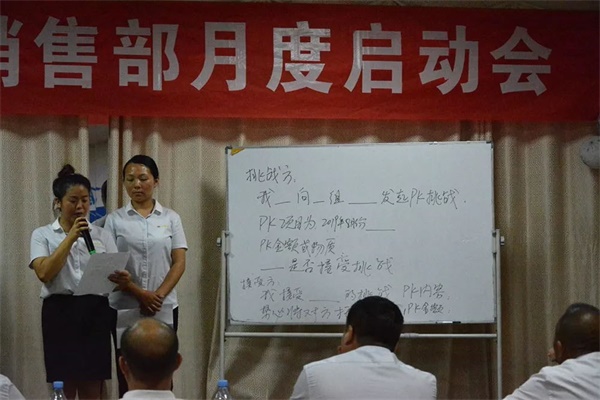 销售部月度启动会
挑战方:
我__向__组____发起PK挑战.
PK项目为2019年8月份____
PK金额或物质
___是否接受挑战
接受方:
我接受____的挑战 PK内容
PK金额